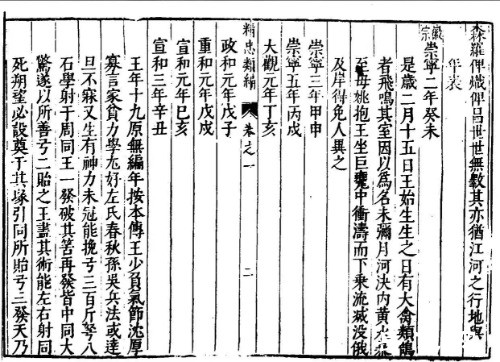 森羅俾熾俾昌世世無斁其亦猶江河之行地與
年表
徽宗崇寧二年癸未
是歲二月十五日王始生生之日有大禽類鵠
者飛鳴其室因以爲名未彌月河決內黃水
至母姚抱王坐巨甕中衝濤而下乘流滅沒俄
及岸得免人異之
崇寧三年甲申
崇寧五年丙戌
大觀元年丁亥
精忠類編 卷之一 二
政和元年戊子
重和元年戊戌
宣和元年己亥
宣和三年辛丑
王年十九原無編年按本傳王少負氣節沈厚
寡言家貧力學尤好左氏春秋孫吳兵法或達
旦不寐又生有神力未冠能挽弓三百斤弩八
石學射于周同王一發破其筈再發皆中同大
驚遂以所善弓二貽之王盡其術能左右射同
死朔望必設奠于其塚引同所貽弓三發天乃